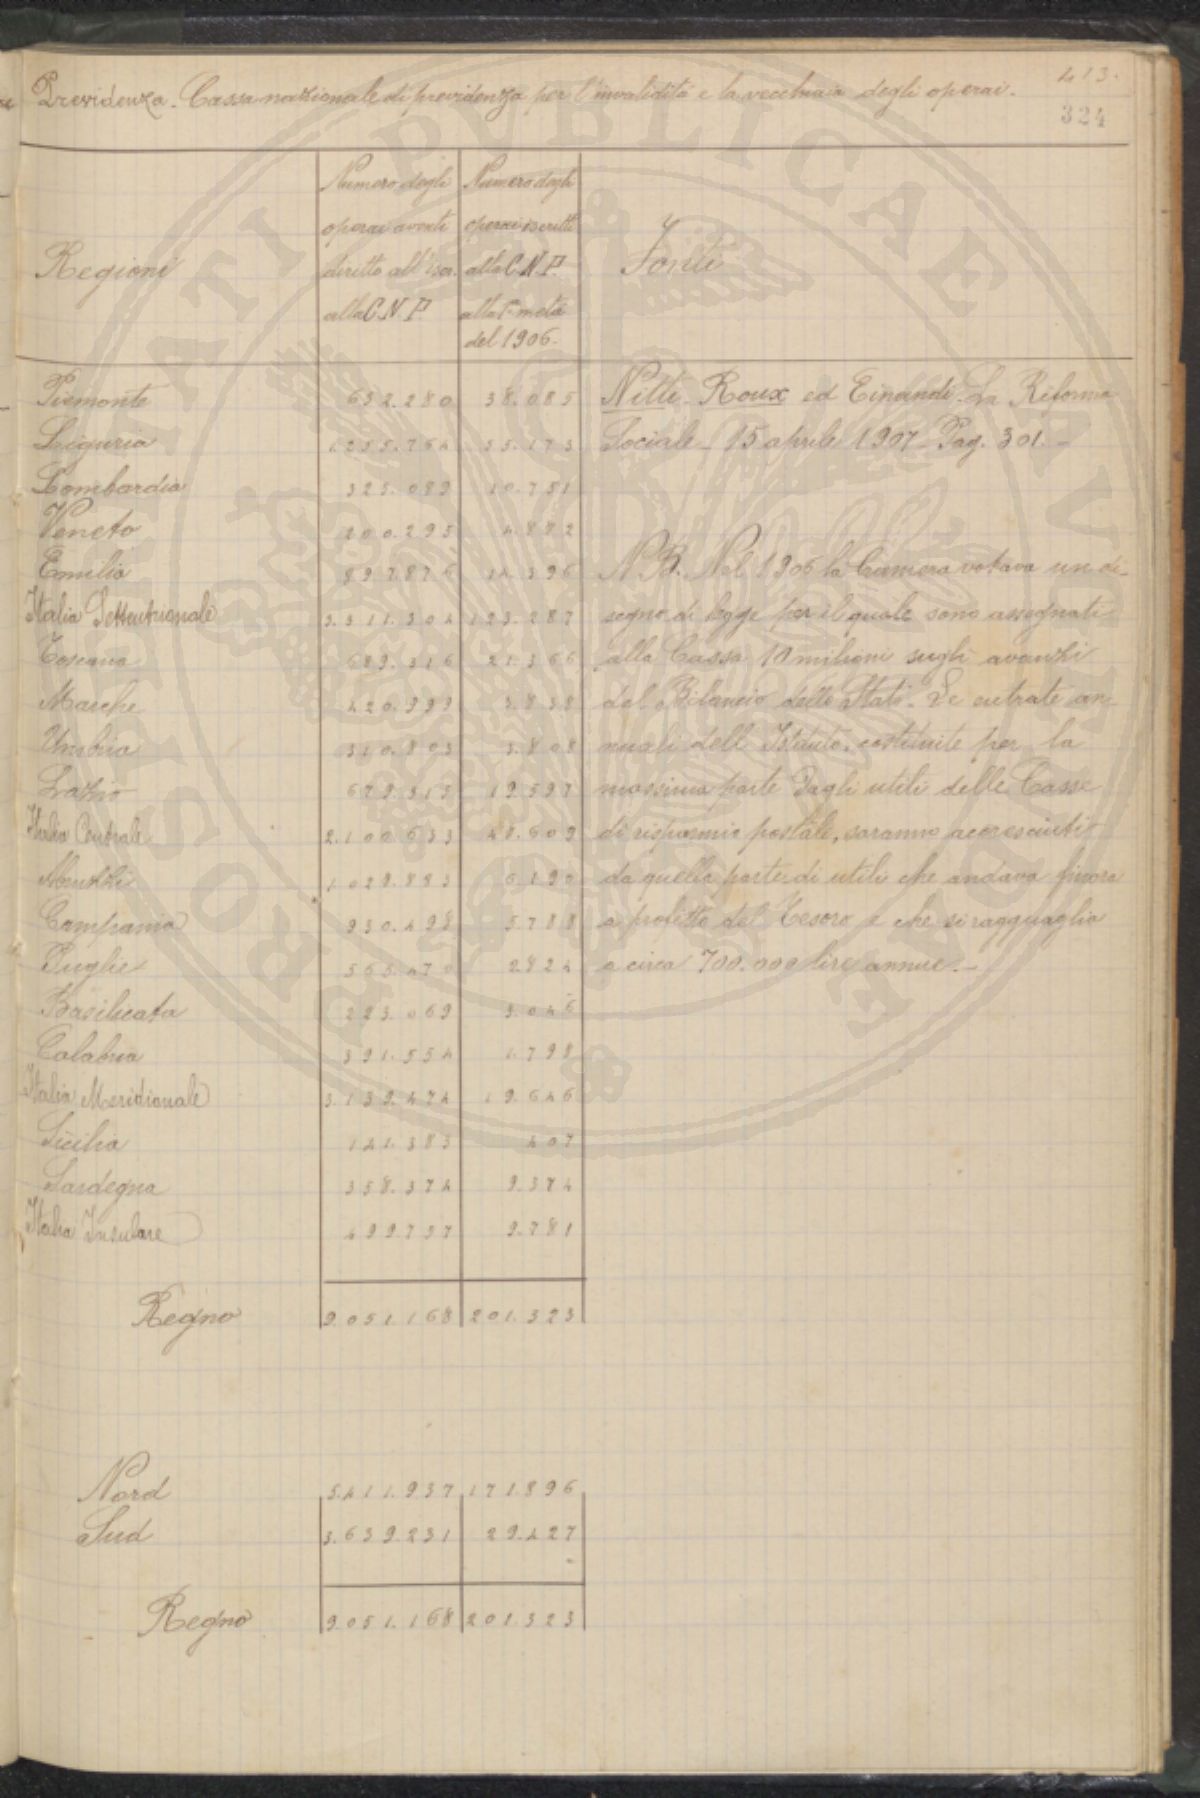 413.
Previdenza. Cassa nazionale di previdenza per l'invalidità e la vecchiaia degli operai.
324
Regioni
Numero degli operai aventi diritto all'isc. alla C.N.P.
Numero degli operai iscritti alla C.N.P. alla 1ª metà del 1906.
Fonti
Piemonte 632.280 38.085
Liguria 55.173
Lombardia 325.089 10.751
Veneto 200.295 4.882
Emilia 897.876 14.396
Italia Settentrionale 3.311.304 123.287
Toscana 689.316 21.366
Marche 420.999 3.838
Umbria 310.803 3.808
Lazio 679.515 19.597
Italia Centrale 2.100.633 48.609
Abruzzi 1029.883 6.190
Campania 930.498 5.788
Puglie 565.470 2824
Basilicata 223.069 3.046
Calabria 391.554 1.798
Italia Meridionale 3.139.474 19.646
Sicilia 141.383 407
Sardegna 358.374 9.374
Italia Insulare 499757 9.781
Regno 9.051.168 201.323
Nord 5.411.937 171.896
Sud 3.639.231 29.427
Regno 9.051.168 201.323
Nitti - Roux ed Einaudi. La Riforma
Sociale - 15 aprile 1907 - Pag. 301. -
NB. Nel 1906 la Camera votava un di-
segno di legge per il quale sono assegnati
alla Cassa 10 milioni sugli avanzi
del Bilancio dello Stato. Le entrate an-
nuali dell'Istituto, costituite per la
massima parte dagli utili delle Casse
di risparmio postale, saranno accresciuti
da quella parte di utili che andava finora
a profitto del Tesoro e che si ragguaglia
a circa 700.000 lire annue. -
PROSPERITATI PUBLICAE AUGENDAE